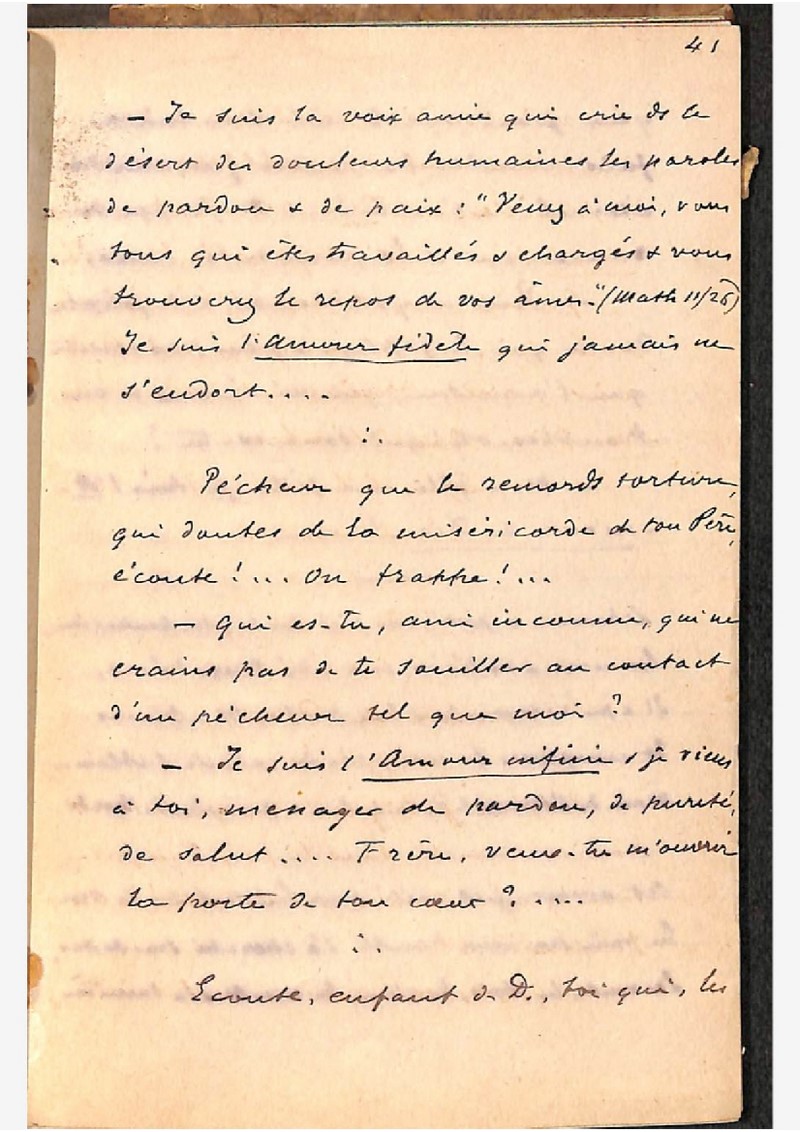 41
– Je suis la voix amie qui crie ds le
désert des douleurs humaines les paroles
de pardon & de paix : "Venez à moi, vous
tous qui êtes travaillés & chargés & vous
trouverez le repos de vos âmes." (Math 11/28)
Je suis l'Amour fidèle qui jamais ne
s'endort....
∴
Pécheur que le remords torture,
qui doutes de la miséricorde de ton Père,
écoute !... On frappe !...
– Qui es-tu, ami inconnu, qui ne
crains pas de te souiller au contact
d'un pécheur tel que moi ?
– Je suis l'Amour infini & je viens
à toi, messager de pardon, de pureté,
de salut .... Frère, veux-tu m'ouvrir
la porte de ton cœur ? ....
∴
Ecoute, enfant de D., toi qui, les